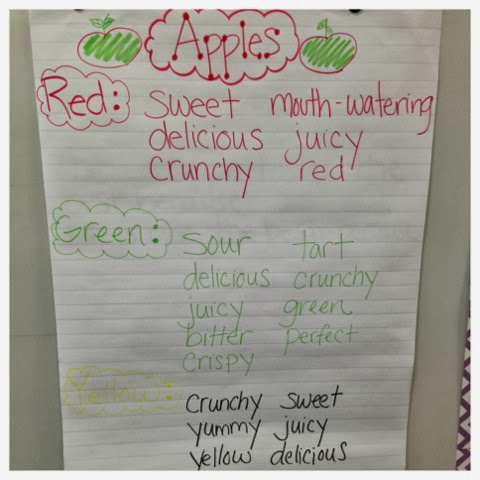 Apples
Red: sweet mouth-watering
delicious juicy
crunchy red
Green: sour tart
delicious crunchy
juicy green
bitter perfect
crispy
Yellow: crunchy sweet
yummy juicy
yellow delicious